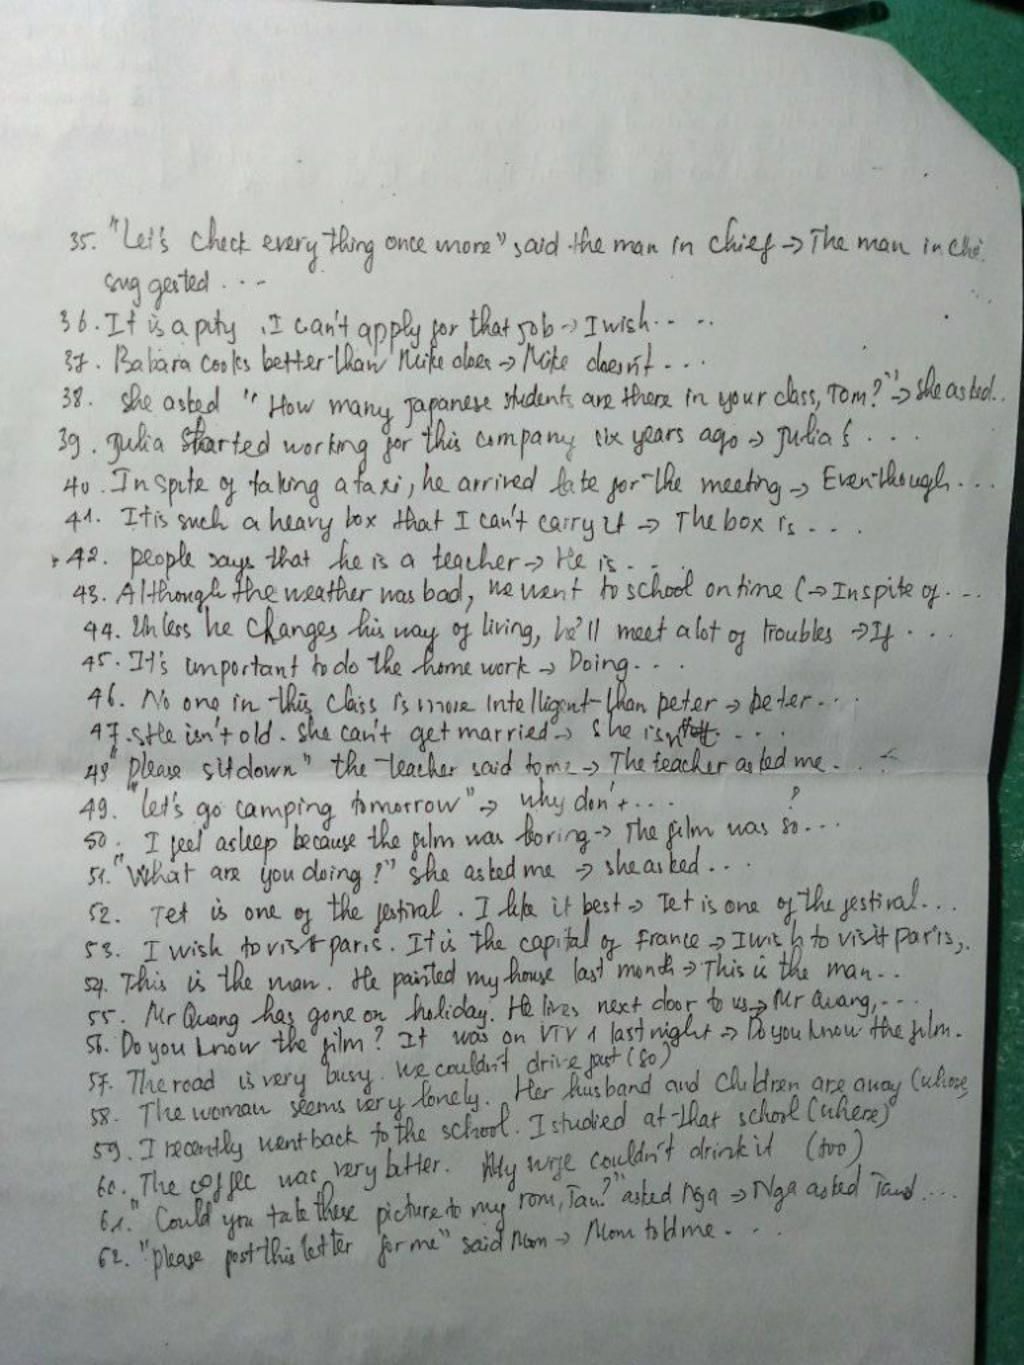 35. "Let's check every thing once more" said the man in chief → The man in chi
suggested . . -
36. It is a pity , I can't apply for that job → I wish. - - .
37. Babara cooks better than Mike does → Mike doesn't - . .
38. she asked "How many Japanese students are there in your class, Tom?" → she asked..
39. Julia started working for this company six years ago → Julia's . . .
40. In spite of taking a taxi, he arrived late for the meeting → Even though. . .
41. It is such a heavy box that I can't carry it → The box is . . .
42. people says that he is a teacher → He is . . .
43. Although the weather was bad, he went to school on time (→ In spite of. - .
44. Unless he changes his way of living, he'll meet a lot of troubles → If . . .
45. It's important to do the home work → Doing. . .
46. No one in this class is more intelligent than peter → peter. . .
47. she isn't old. she can't get married → she is . . .
48 "Please sit down" the teacher said to me → The teacher asked me. . .
49. "let's go camping tomorrow" → why don't . . . ?
50. I feel asleep because the film was boring → The film was so. . .
51. "What are you doing?" she asked me → she asked . . .
52. Tet is one of the festival. I like it best → Tet is one of the festival. . .
53. I wish to visit paris. It is the capital of France → I wish to visit paris,.
54. This is the man. He painted my house last month → This is the man. .
55. Mr Quang has gone on holiday. He lives next door to us → Mr Quang, . . .
56. Do you know the film? It was on VTV 1 last night → Do you know the film.
57. The road is very busy. we couldn't drive fast (so)
58. The woman seems very lonely. Her husband and children are away (whose
59. I recently went back to the school. I studied at that school (where)
60. The coffee was very bitter. My wife couldn't drink it (too)
61. "Could you take these picture to my rom, Tan?" asked Nga → Nga asked . . .
62. "please post this letter for me" said Mom → Mom told me. . .